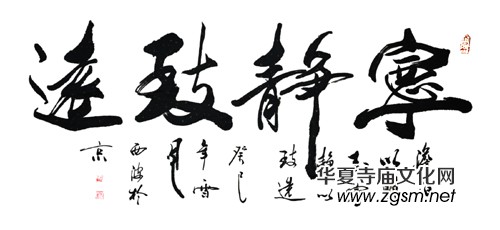 寧靜致遠
澹泊
以明
志寧
靜以
致遠
癸巳
年雪
月
京
华夏寺庙文化网
www.zgsm.net